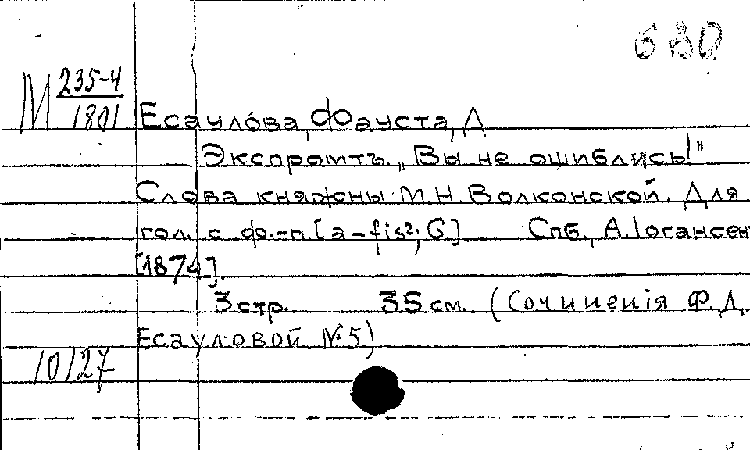 630
М 235-4
1801
Есаулова, Фауста, Д
Экспромтъ „Вы не ошиблись!"
Слова княжны М.Н. Волконской. Для
гол. с ф.-п. [a-fis²; G] Спб., А. Іогансен
[1874].
3 стр. 35 см. (Сочиненія Ф. Д.
Есауловой №5)
10127